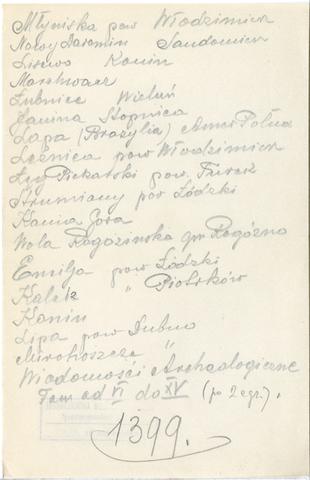 Młyniska pow Włodzimierz
Nowy Jaromin Sandomierz
Lisewo Konin
Marchwacz
Łubnice Wieluń
Janina Stopnica
Lapa (Brazylia) Amer Połud
Leżnica pow Włodzimierz
Ług Piekarski pow. Turek
Strumiany pow Łódzki
Kamia Góra
Wola Rogozińska gm Rogóźno
Emilja pow Łódzki
Kalisz " Piotrków
Konin
Lipa pow Dubno
Mirohoszcze "
Wiadomości Archeologiczne
Tom od VI do XV (po 2 egz.).
1399.